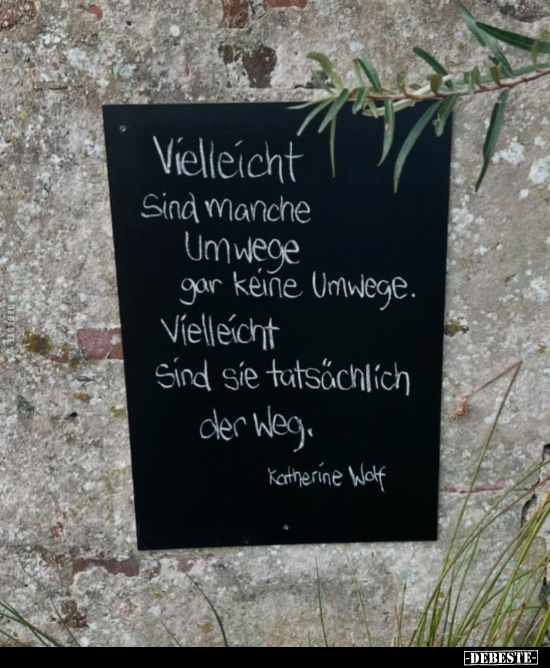 Vielleicht
sind manche
Umwege
gar keine Umwege.
Vielleicht
sind sie tatsächlich
der Weg.
Katherine Wolf
-DEBESTE-